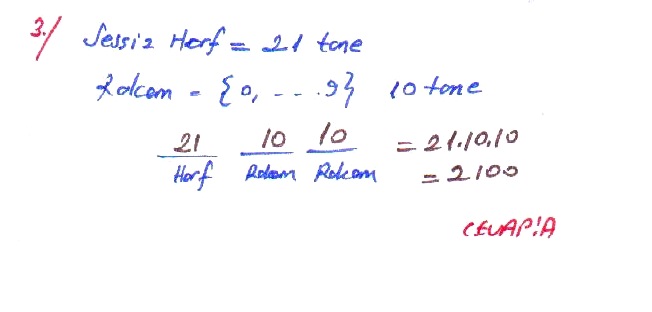 3./ Sessiz Harf = 21 tane
Rakam = {0, - - .9} 10 tane
21 10 10 = 21.10.10
Harf Rakam Rakam = 2100
CEVAP:A